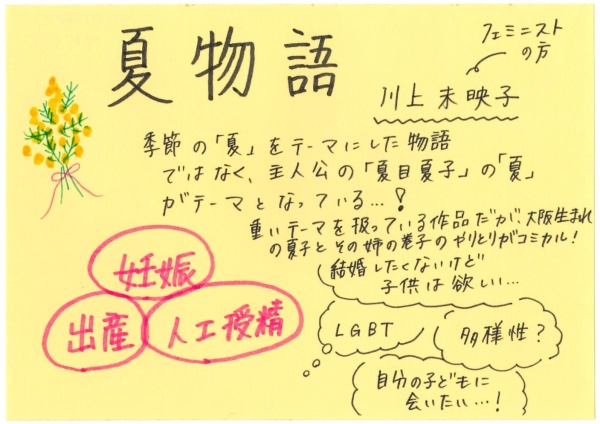 夏物語
フェミニスト
の方
川上未映子
季節の「夏」をテーマにした物語
ではなく、主人公の「夏目夏子」の「夏」
がテーマとなっている…!
重いテーマを扱っている作品だが、大阪生まれ
の夏子とその姉の巻子のやりとりがコミカル!
妊娠
出産
人工授精
結婚したくないけど
子供は欲しい…
LGBT
多様性?
自分の子どもに
会いたい…!